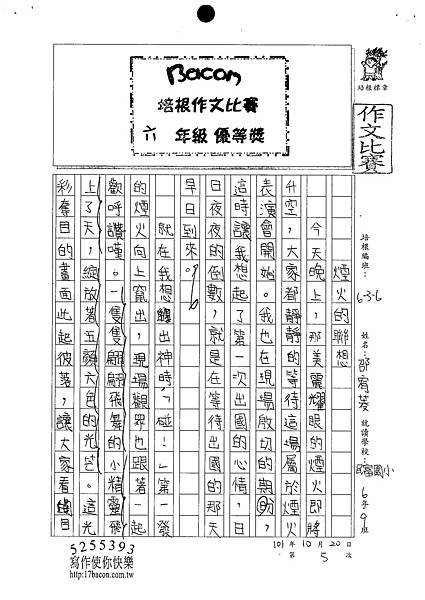 Bacon
培根作文比賽
六 年級 優等獎
培根標章
作文比賽
培根編班：6-3-6
姓名：邵宥菱
就讀學校：國小
6年9班
101年10月20日
第5次
煙火的聯想
今天晚上，那美麗耀眼的煙火即將
升空，大家都靜靜的等待這場屬於煙火
表演會開始。我也在現場殷切的期盼，
這時讓我想起了第一次出國的心情，日
日夜夜的倒數，就是在等待出國的那天
早日到來。
就在我想出神時，「碰！」第一發
的煙火向上竄出，現場觀眾也跟著一起
歡呼讚嘆。一隻隻翩翩飛舞的小精靈飛
上了天，綻放著五顏六色的光芒。這光
彩奪目的畫面此起彼落，讓大家看目
5255393
寫作使你快樂
http://17bacon.com.tw